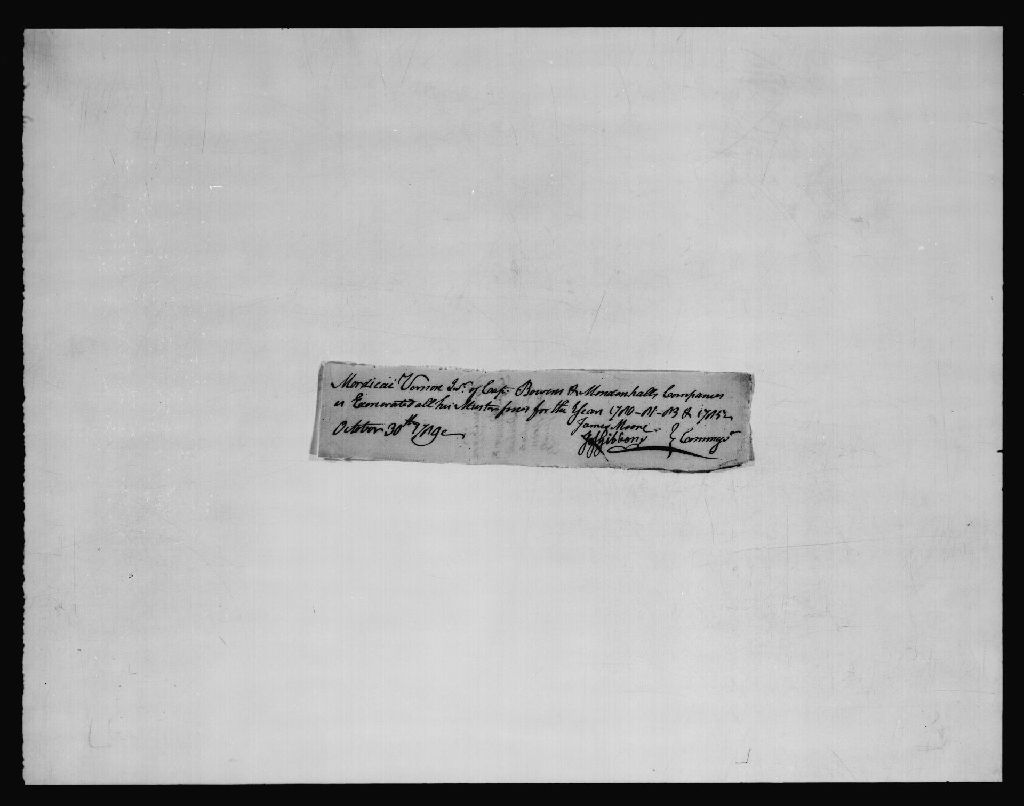 Mordicai Vernon Jnr. of Capt. Bowens & Mendenhalls Companies
is Exonerated all his Muster fines for the Years 1780-81-83 & 1785
James Moore
October 30th 1789 Js Gibbons } Commrs